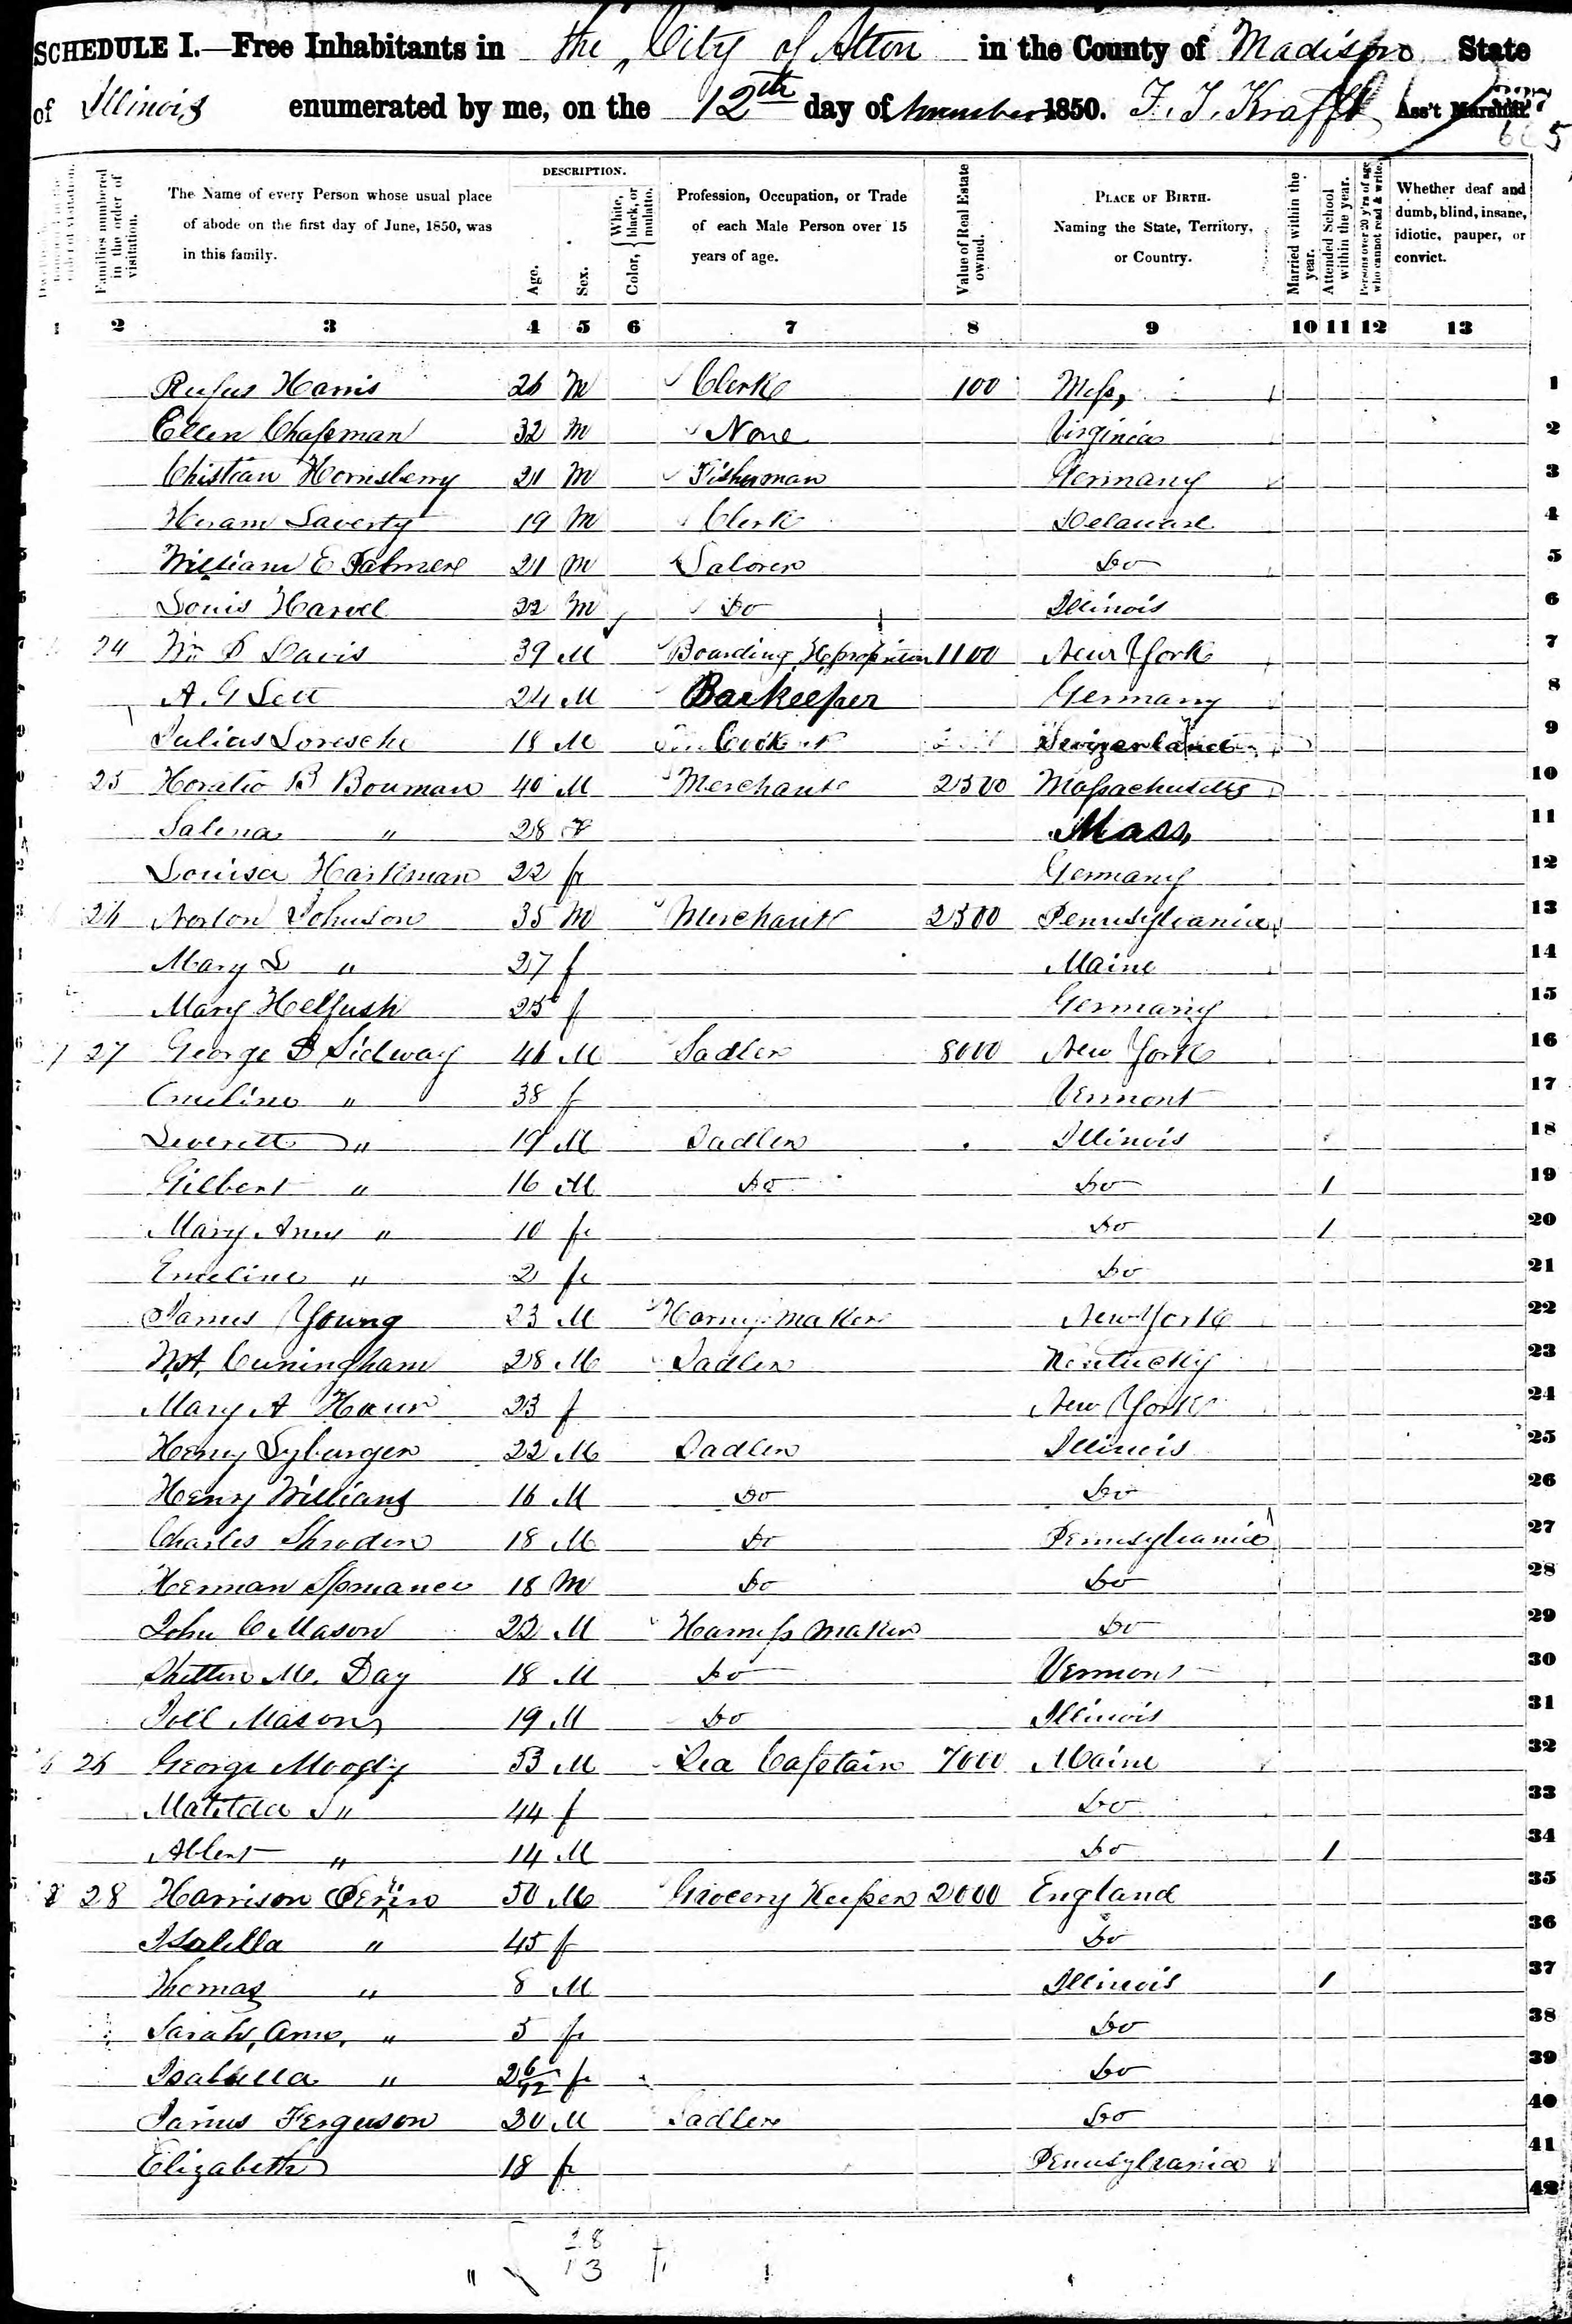 SCHEDULE I.—Free Inhabitants in the City of Alton in the County of Madison State
of Illinois enumerated by me, on the 12th day of November 1850. F. T. Krafft Ass't Marshal.
Families numbered in the order of visitation.
The Name of every Person whose usual place of abode on the first day of June, 1850, was in this family.
DESCRIPTION.
Age.
Sex.
Color, White, black, or mulatto.
Profession, Occupation, or Trade of each Male Person over 15 years of age.
Value of Real Estate owned.
PLACE OF BIRTH. Naming the State, Territory, or Country.
Married within the year.
Attended School within the year.
Persons over 20 y'rs of age who cannot read & write.
Whether deaf and dumb, blind, insane, idiotic, pauper, or convict.
1 2 3 4 5 6 7 8 9 10 11 12 13
Rufus Harris 26 M Clerk 100 1
Ellen Chapman 32 M None Virginia 2
Chistian Hornsberry 21 M Fisherman Germany 3
Hiram Laverty 19 M Clerk Delaware 4
William E Palmer 21 M Laborer Do 5
Louis Harvel 22 M Do Illinois 6
24 Wm D Davis 39 M Boarding 1100 New York 7
A. G 24 M Barkeeper Germany 8
Julias Loresche 18 M Cook 9
25 Horatio B Bowman 40 M Merchant 2500 Massachusetts 10
Salena " 28 F Mass, 11
Louisa Hartman 22 f Germany 12
26 Norton Johnson 35 M Merchant 2500 Pennsylvania 13
Mary L " 27 f Maine 14
Mary 25 f Germany 15
27 George D Sidway 46 M Sadler 8000 New York 16
Emeline " 38 f Vermont 17
Leverett " 19 M Sadler Illinois 18
Gilbert " 16 M Do Do 1 19
Mary Ann " 10 f Do 1 20
Emeline " 2 f Do 21
James Young 23 M Harness maker New York 22
Cuningham 28 M Sadler Kentucky 23
Mary A 23 f New York 24
Henry Lyburger 22 M Sadler Illinois 25
Henry Williams 16 M Do Do 26
Charles Shroder 18 M Do Pennsylvania 27
Herman Spruance 18 M Do Do 28
John C Mason 22 M Harness Maker Do 29
M. Day 18 M Do Vermont 30
Joel Mason 19 M Do Illinois 31
26 George Moody 53 M Sea Captain 7000 Maine 32
Matilda S " 44 f Do 33
Albert " 14 M Do 1 34
28 Harrison 50 M Grocery Keeper 2000 England 35
Isabella " 45 f Do 36
Thomas " 8 M Illinois 1 37
Sarah, Ann, " 5 f Do 38
Isabella " 2 6/12 f Do 39
James Ferguson 30 M Sadler Do 40
Elizabeth 18 f Pennsylvania 41
42
28
13